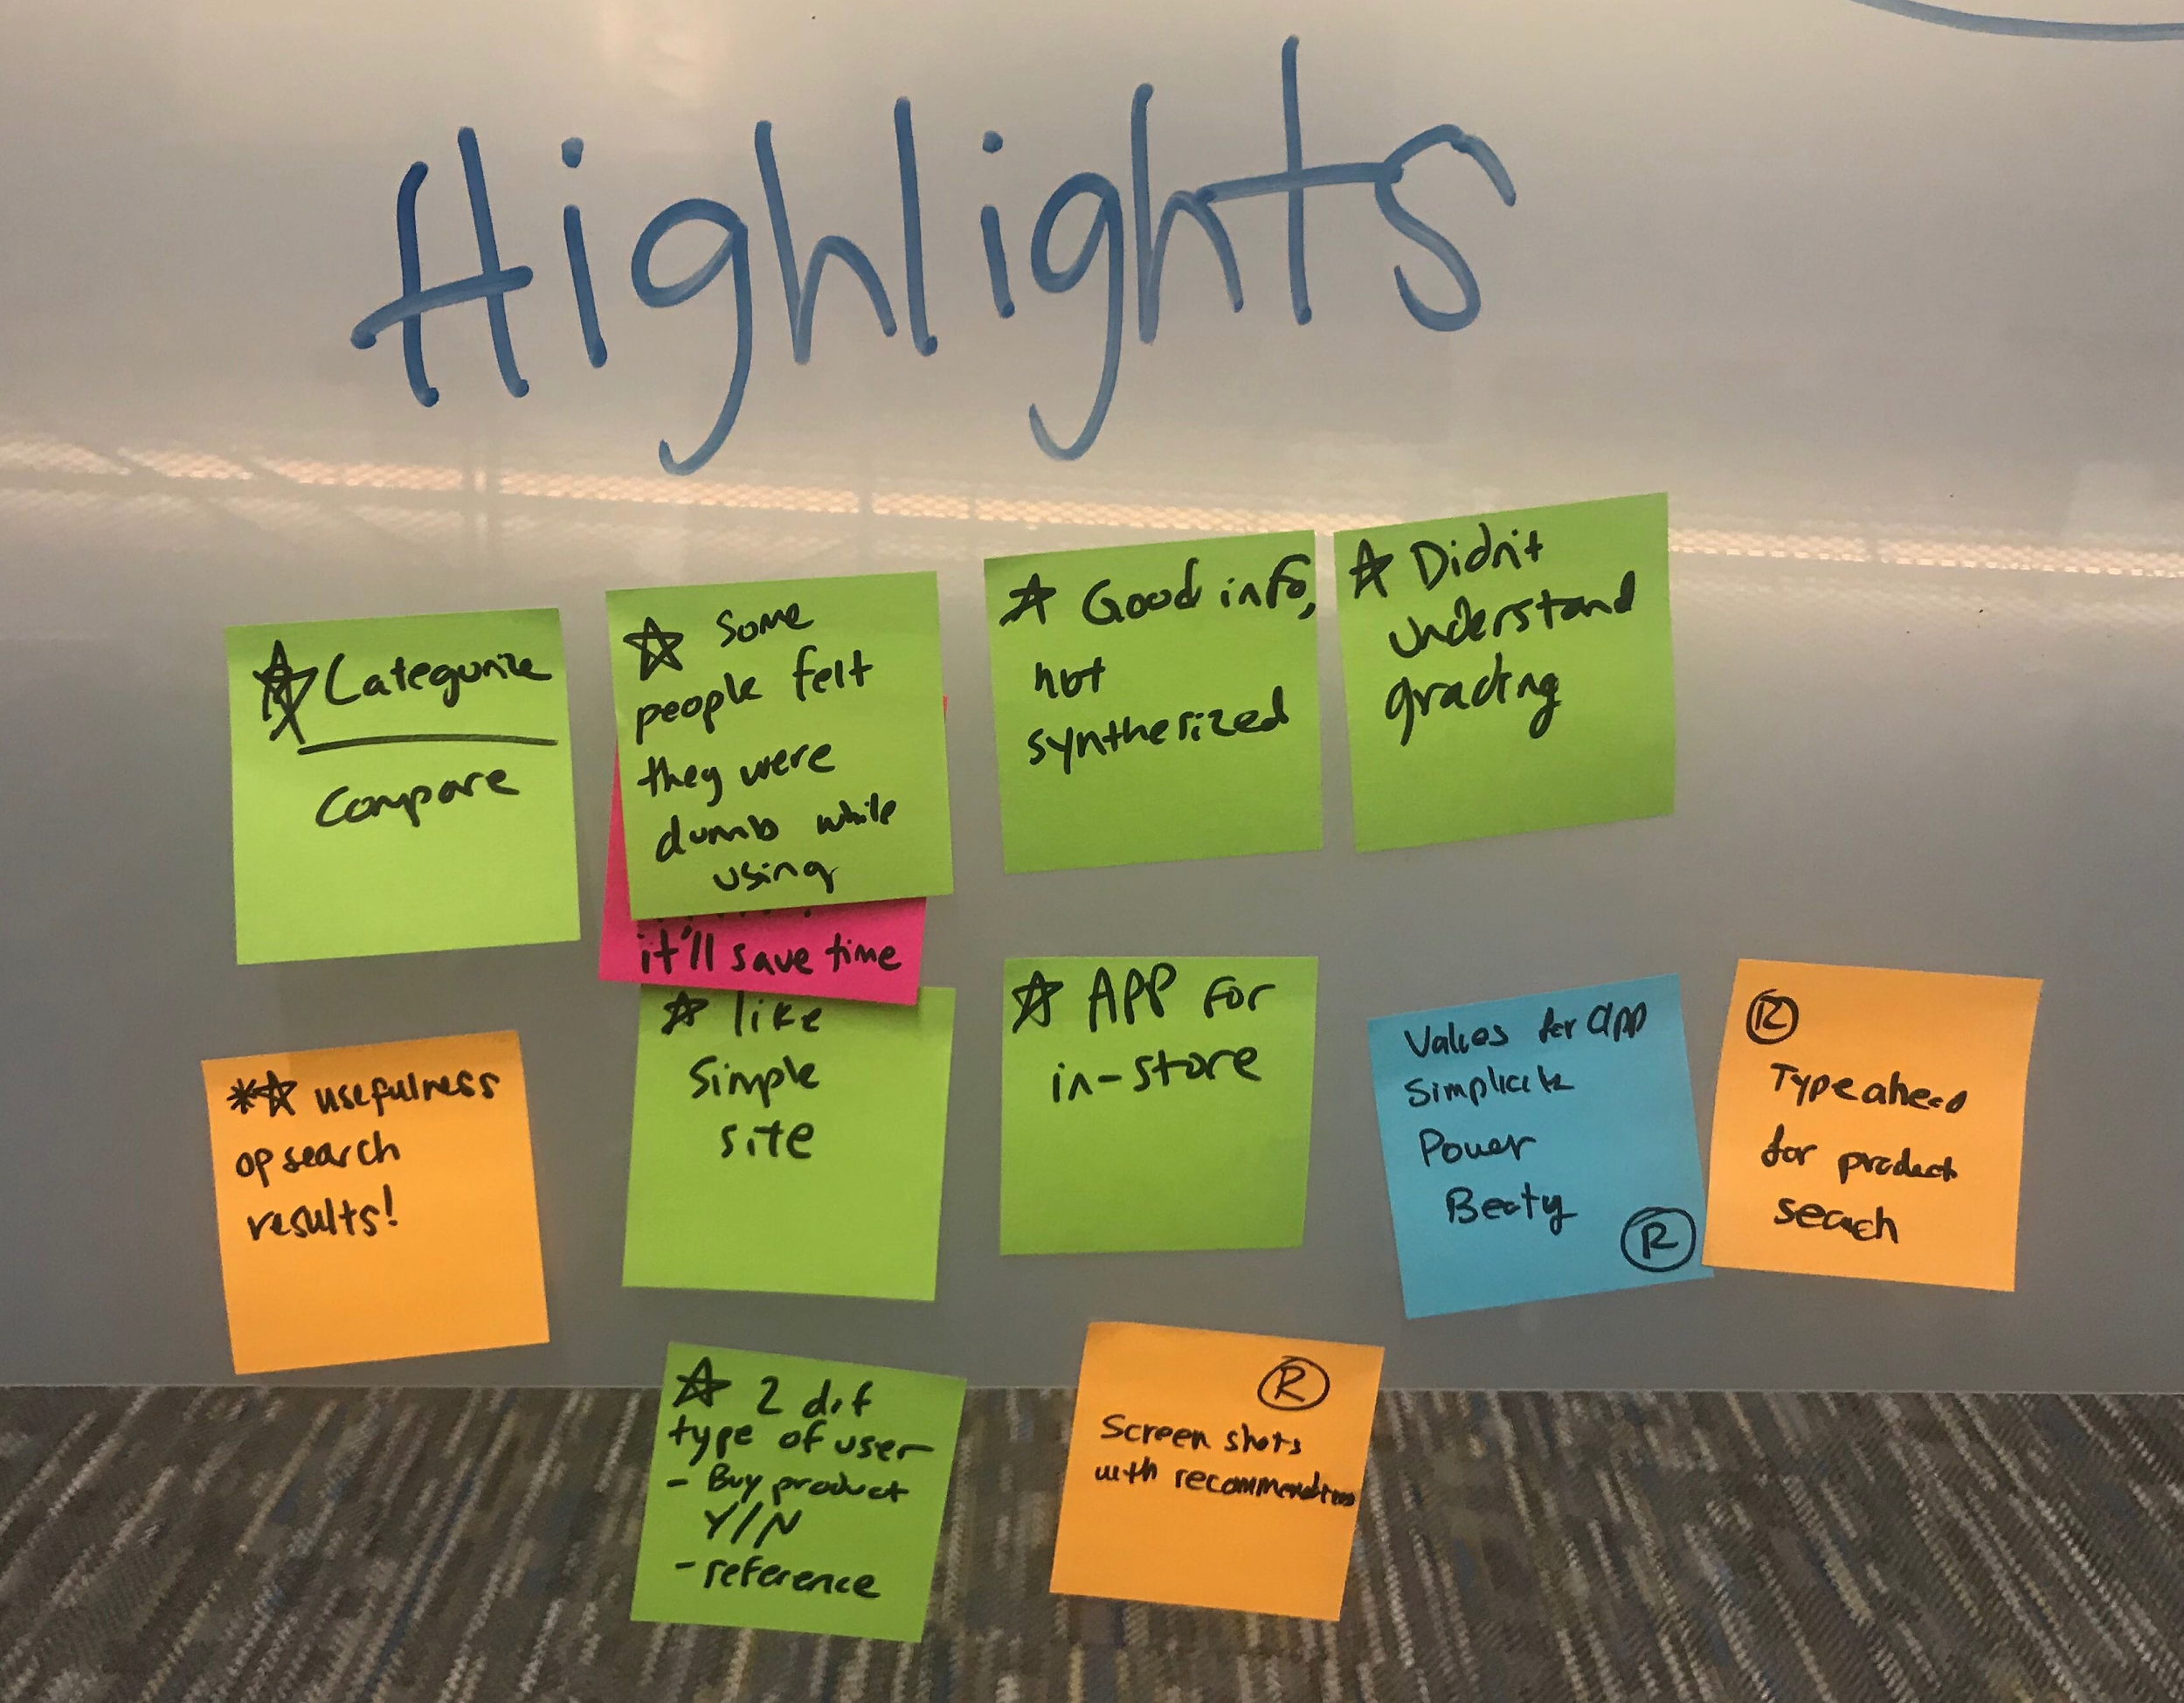 Highlights
Categorize
Compare
Some
people felt
they were
dumb while
using
it'll save time
Good info,
not
synthesized
Didn't
understand
grading
usefulness
op search
results!
like
Simple
site
APP for
in-store
Values for app
Simplicity
Power
Beaty
R
R
Typeahead
for product
search
2 dif
type of user
- Buy product
Y/N
- reference
R
Screen shots
with recommendations